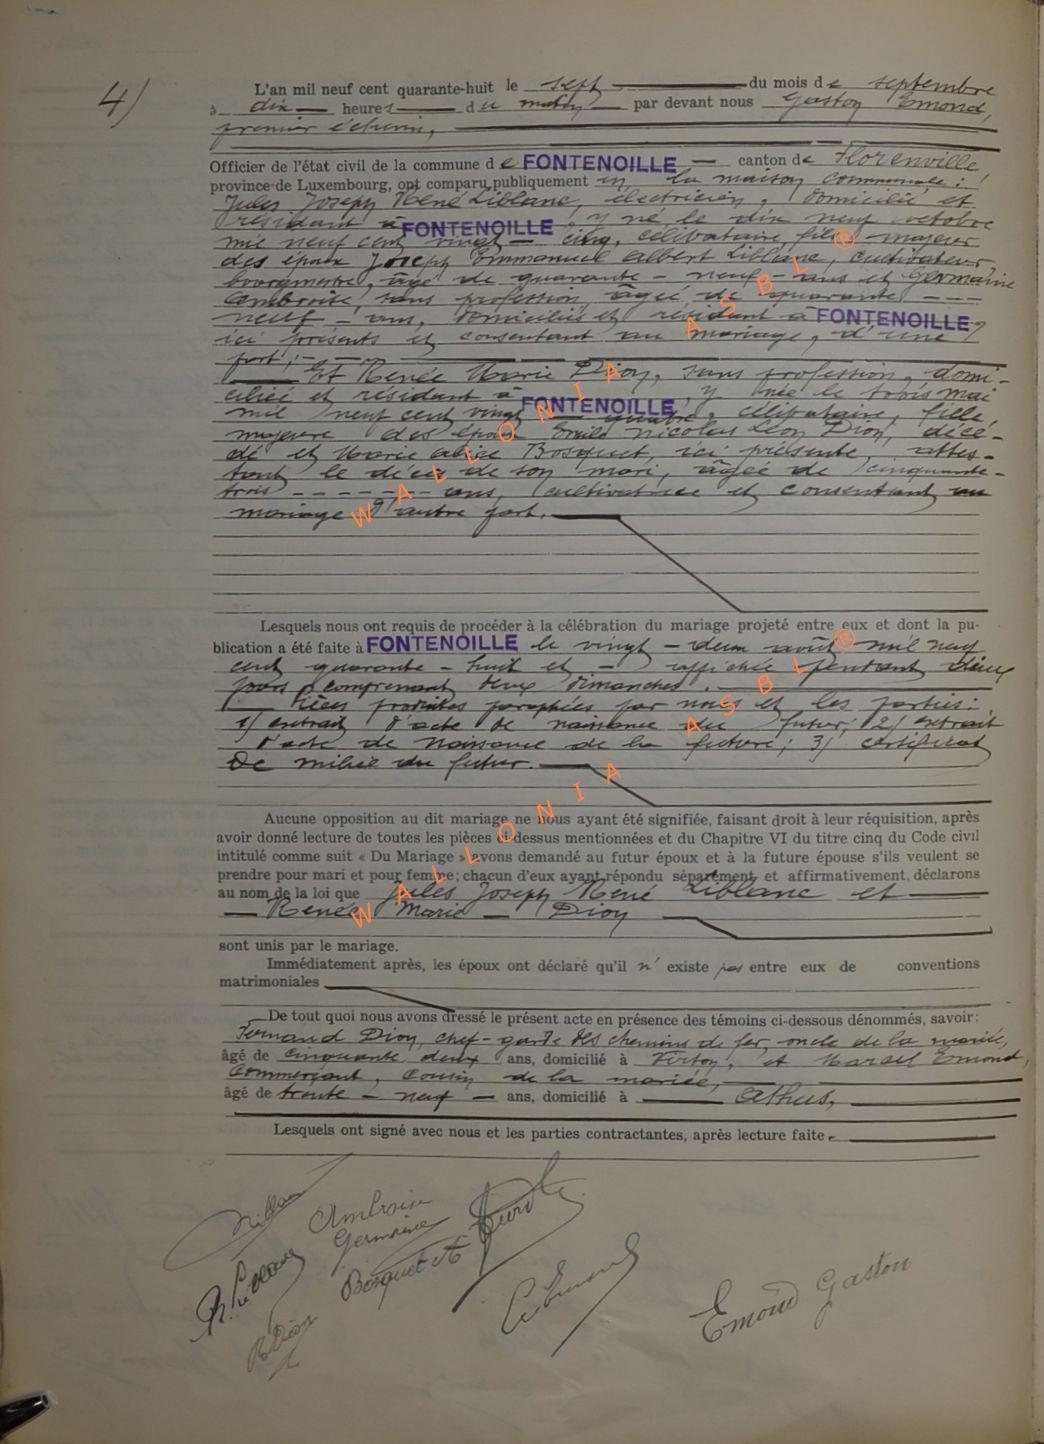 4)
L'an mil neuf cent quarante-huit le sept du mois de septembre
à dix heures du matin par devant nous Gaston Emond,
premier échevin,
Officier de l'état civil de la commune de FONTENOILLE — canton de Florenville
province de Luxembourg, ont comparu publiquement en la maison communale :
Jules Joseph René Liblanc, électricien, domicilié et
résidant à FONTENOILLE, y né le dix neuf octobre
mil neuf cent vingt - cinq, célibataire, fils majeur
des époux Joseph Emmanuel Albert Liblanc, cultivateur
bourgmestre, âgé de quarante - neuf - ans et Germaine
Ambroise, sans profession, âgée de quarante ---
neuf - ans, domiciliés et résidant à FONTENOILLE,
ici présents et consentant au mariage, d'une
part ; - -
Et Renée Marie Dion, sans profession, domi-
ciliée et résidant à FONTENOILLE, y née le trois mai
mil neuf cent vingt quatre, célibataire, fille
majeure des époux Emile Nicolas Léon Dion, décé-
dé et Marie Alice Bosquet, ici présente, attes-
tant le décès de son mari, âgée de cinquante-
trois - - - - - - ans, cultivatrice et consentant au
mariage d'autre part.
Lesquels nous ont requis de procéder à la célébration du mariage projeté entre eux et dont la pu-
blication a été faite à FONTENOILLE le vingt - deux août mil neuf
cent quarante - huit et - affichée pendant dix
jours comprenant deux dimanches.
Pièces produites paraphées par nous et les parties :
1) extrait d'acte de naissance du futur; 2) extrait
d'acte de naissance de la future; 3) certificat
de milice du futur.
Aucune opposition au dit mariage ne nous ayant été signifiée, faisant droit à leur réquisition, après
avoir donné lecture de toutes les pièces ci-dessus mentionnées et du Chapitre VI du titre cinq du Code civil
intitulé comme suit « Du Mariage » avons demandé au futur époux et à la future épouse s'ils veulent se
prendre pour mari et pour femme; chacun d'eux ayant répondu séparément et affirmativement, déclarons
au nom de la loi que Jules Joseph René Liblanc et
— Renée Marie — Dion
sont unis par le mariage.
Immédiatement après, les époux ont déclaré qu'il n' existe pas entre eux de conventions
matrimoniales
De tout quoi nous avons dressé le présent acte en présence des témoins ci-dessous dénommés, savoir :
Fernand Dion, chef-garde des chemins de fer, oncle de la mariée,
âgé de cinquante deux ans, domicilié à Virton, et Marcel Emond,
commerçant, cousin de la mariée,
âgé de trente - neuf — ans, domicilié à Athus,
Lesquels ont signé avec nous et les parties contractantes, après lecture faite.
Ambroise
Germaine
Bosquet A
R. Liblanc
R Dion
Emond Gaston
WALLONIA ASBL ®
WALLONIA ASBL ®